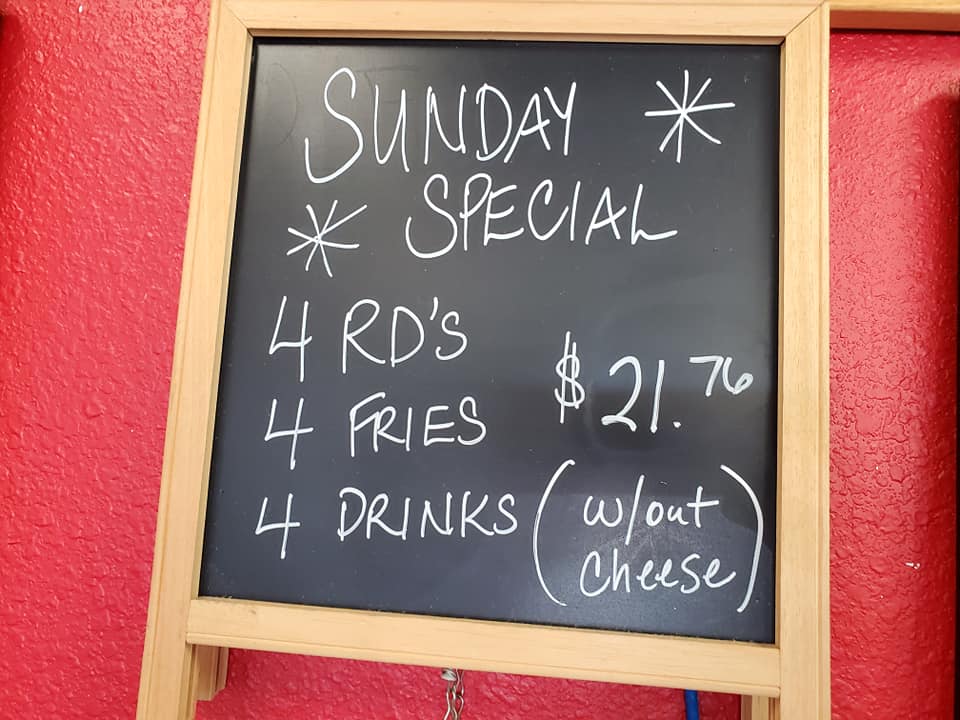 SUNDAY *
* SPECIAL
4 RD'S
4 FRIES
$21.76
4 DRINKS
(w/out
cheese)